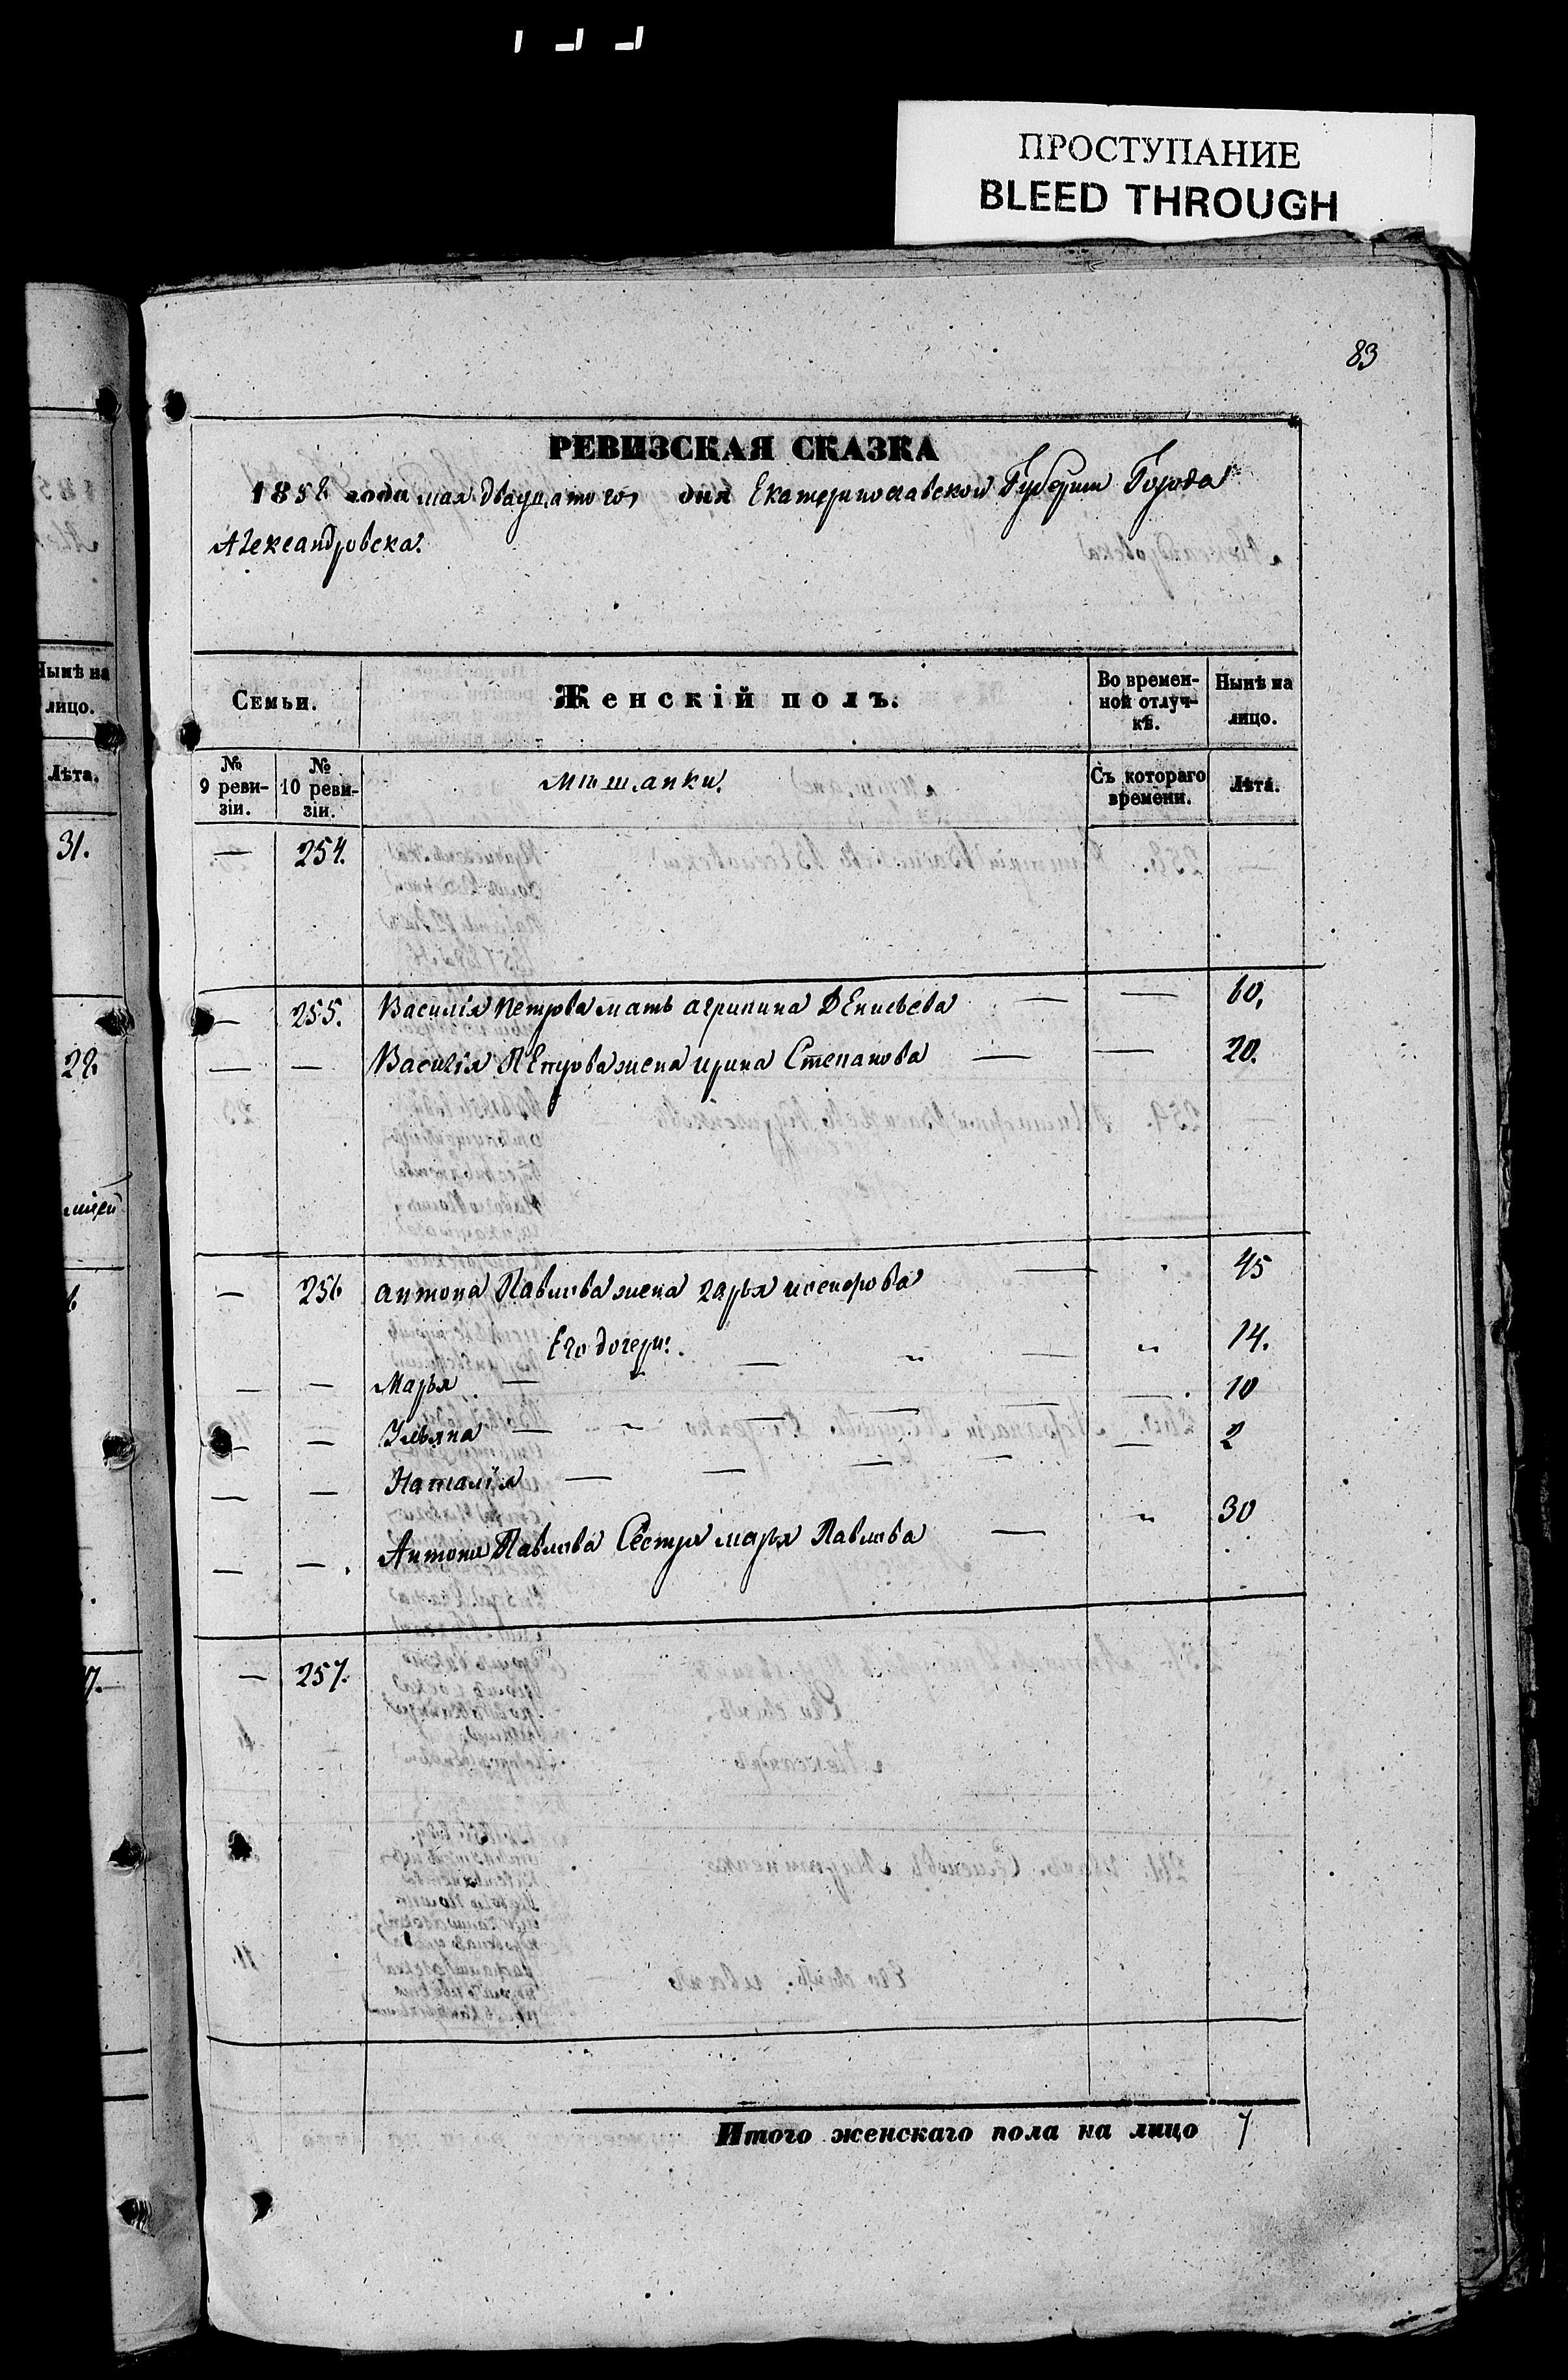 ПРОСТУПАНИЕ
BLEED THROUGH
83
РЕВИЗСКАЯ СКАЗКА
1858 года мая двадцатого дня Екатеринославской Губернии Города
Александровска.
Семьи. Женскій полъ. Во времен-ной отлуч-кѣ. Нынѣ на лицо.
№ 9 реви-зіи. № 10 реви-зіи. Мѣщанки. Съ котораго времени. Лѣта.
— 254.
— 255. Василія Петрова мать агрипина Денисьева — — 60.
— — Василія Петрова жена ирина Степанова — — 20.
— 256 антона Павлова жена дарья 45
Его дочери:
— — Марья — — „ — „ 14.
— — Ульяна — „ — — 10
— — Наталія — — — — — 2
— — Антона Павлова Сестра марья Павлова — „ 30
— 257.
Итого женскаго пола на лицо 7
Нынѣ на
лицо.
Лѣта.
31.
22.